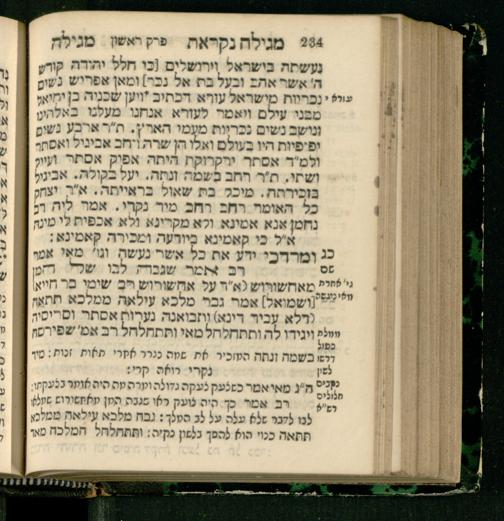 234 מגילה נקראת פרק ראשון מגילה
נעשתה בישראל וירושלים [כי חלל יהודה קודש
ה' אשר אהב ובעל בת אל נכר] ומאן אפריש נשים
נכריות מישראל עזרא דכתיב ויען שכניה בן יחיאל
מבני עילם ויאמר לעזרא אנחנו מעלנו באלהינו
ונושב נשים נכריות מעמי הארץ. ת"ר ארבע נשים
יפיפיות היו בעולם ואלו הן שרה רחב אביגיל ואסתר
ולמ"ד אסתר ירקרוקת היתה אפיק אסתר ועייל
ושתי. ת"ר רחב בשמה זנתה. יעל בקולה. אביגיל
בזכירתה. מיכל בת שאול בראייתה. א"ר יצחק
כל האומר רחב רחב מיד נקרי. אמר ליה רב
נחמן אנא אמינא ולא אכפית לי מינה
א"ל כי קאמינא ביודעה ומכירה קאמינא:
ומרדכי ידע את כל אשר נעשה וגו' מאי אמר
רב אמר שגבהה לבו של המן
מאחשורוש [א"ד על אחשורוש רב שימי בר חייא]
[ושמואל] אמר גבר מלכא עילאה ממלכא תתאה
(דלא עביד דינא) ותבואנה נערות אסתר וסריסיה
ויגידו לה ותתחלחל מאי ותתחלחל רב אמ' שפירסה
בשמה זנתה המזכיר את שמה נגרר אחרי תאות זנות: מיד
נקרי רואה קרי:
רב אמר כך היה
לבו לדבר שלא עלה על לב המלך: גבה מלכא עילאה ממלכא
תתאה כנוי הוא להפך בלשון נקיה: ותתחלחל המלכה מאד
עזרא י
כג
שם